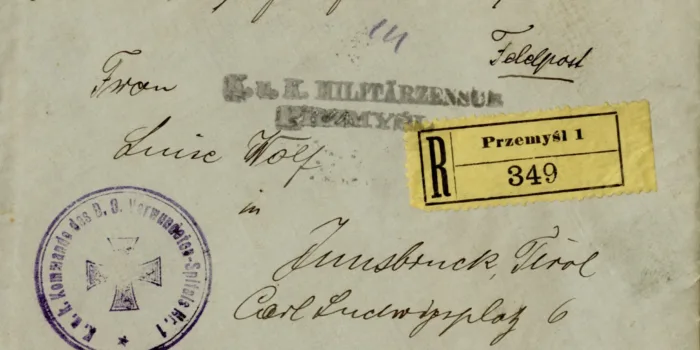 Feldpost
K. u. K. MILITÄRZENSUR
PRZEMYŚL
Frau
Luise Wolf
R
Przemyśl 1
349
in
Innsbruck, Tirol
Carl Ludwigsplatz 6
K. u. k. Kommando des D. O. Verwundeten-Spitals Nr. 1